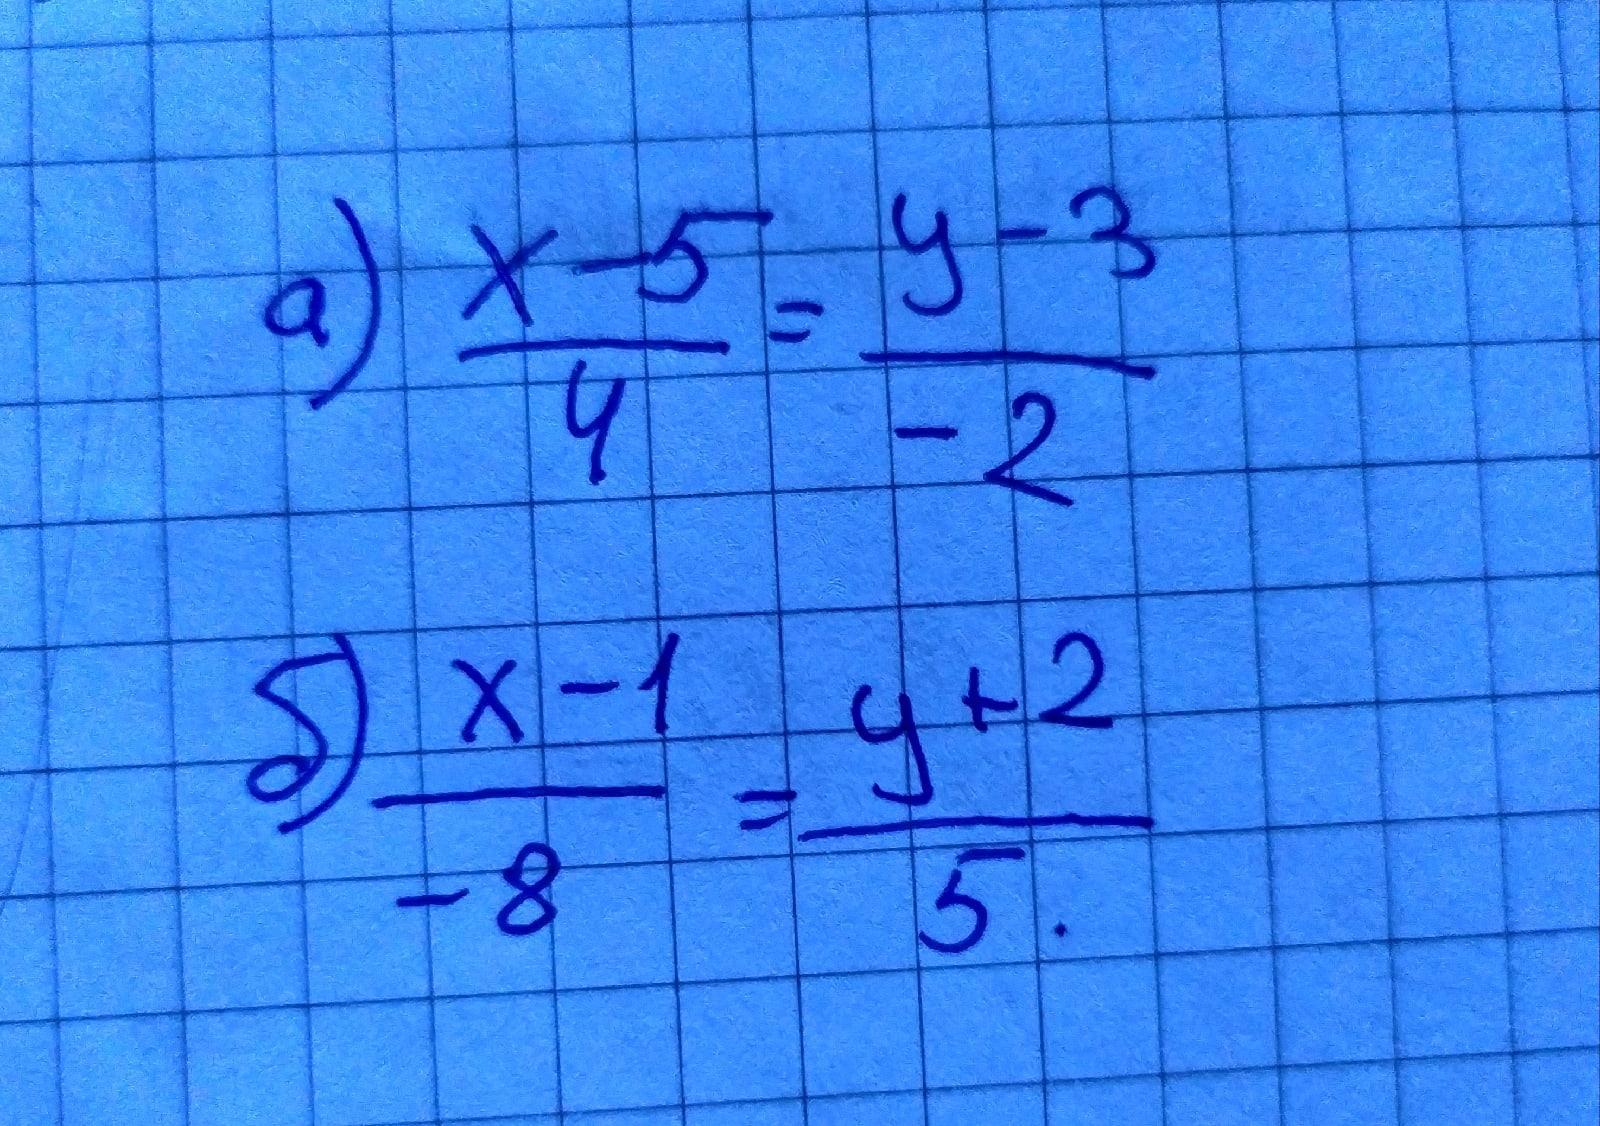 а) x-5/4 = y-3/-2
б) x-1/-8 = y+2/5.